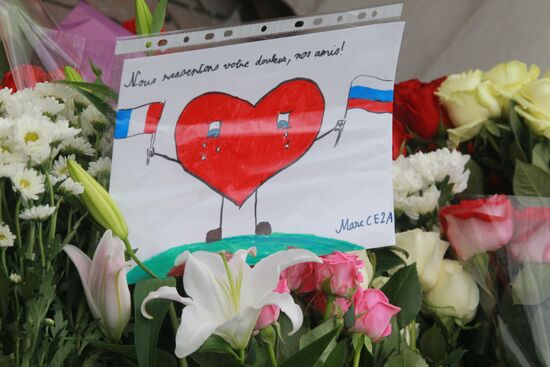 Nous ressentons votre douleur, nos amis!
Marc CEZA